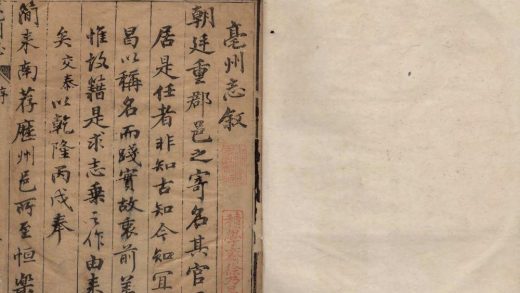 亳州志叙
朝廷重郡邑之寄名其官
居是任者非知古知今知冝
曷以稱名而踐實故前
惟故籍是求志乘之作由来
矣交泰以乾隆丙戌奉
簡来南荐歷州邑所至恒樂
序